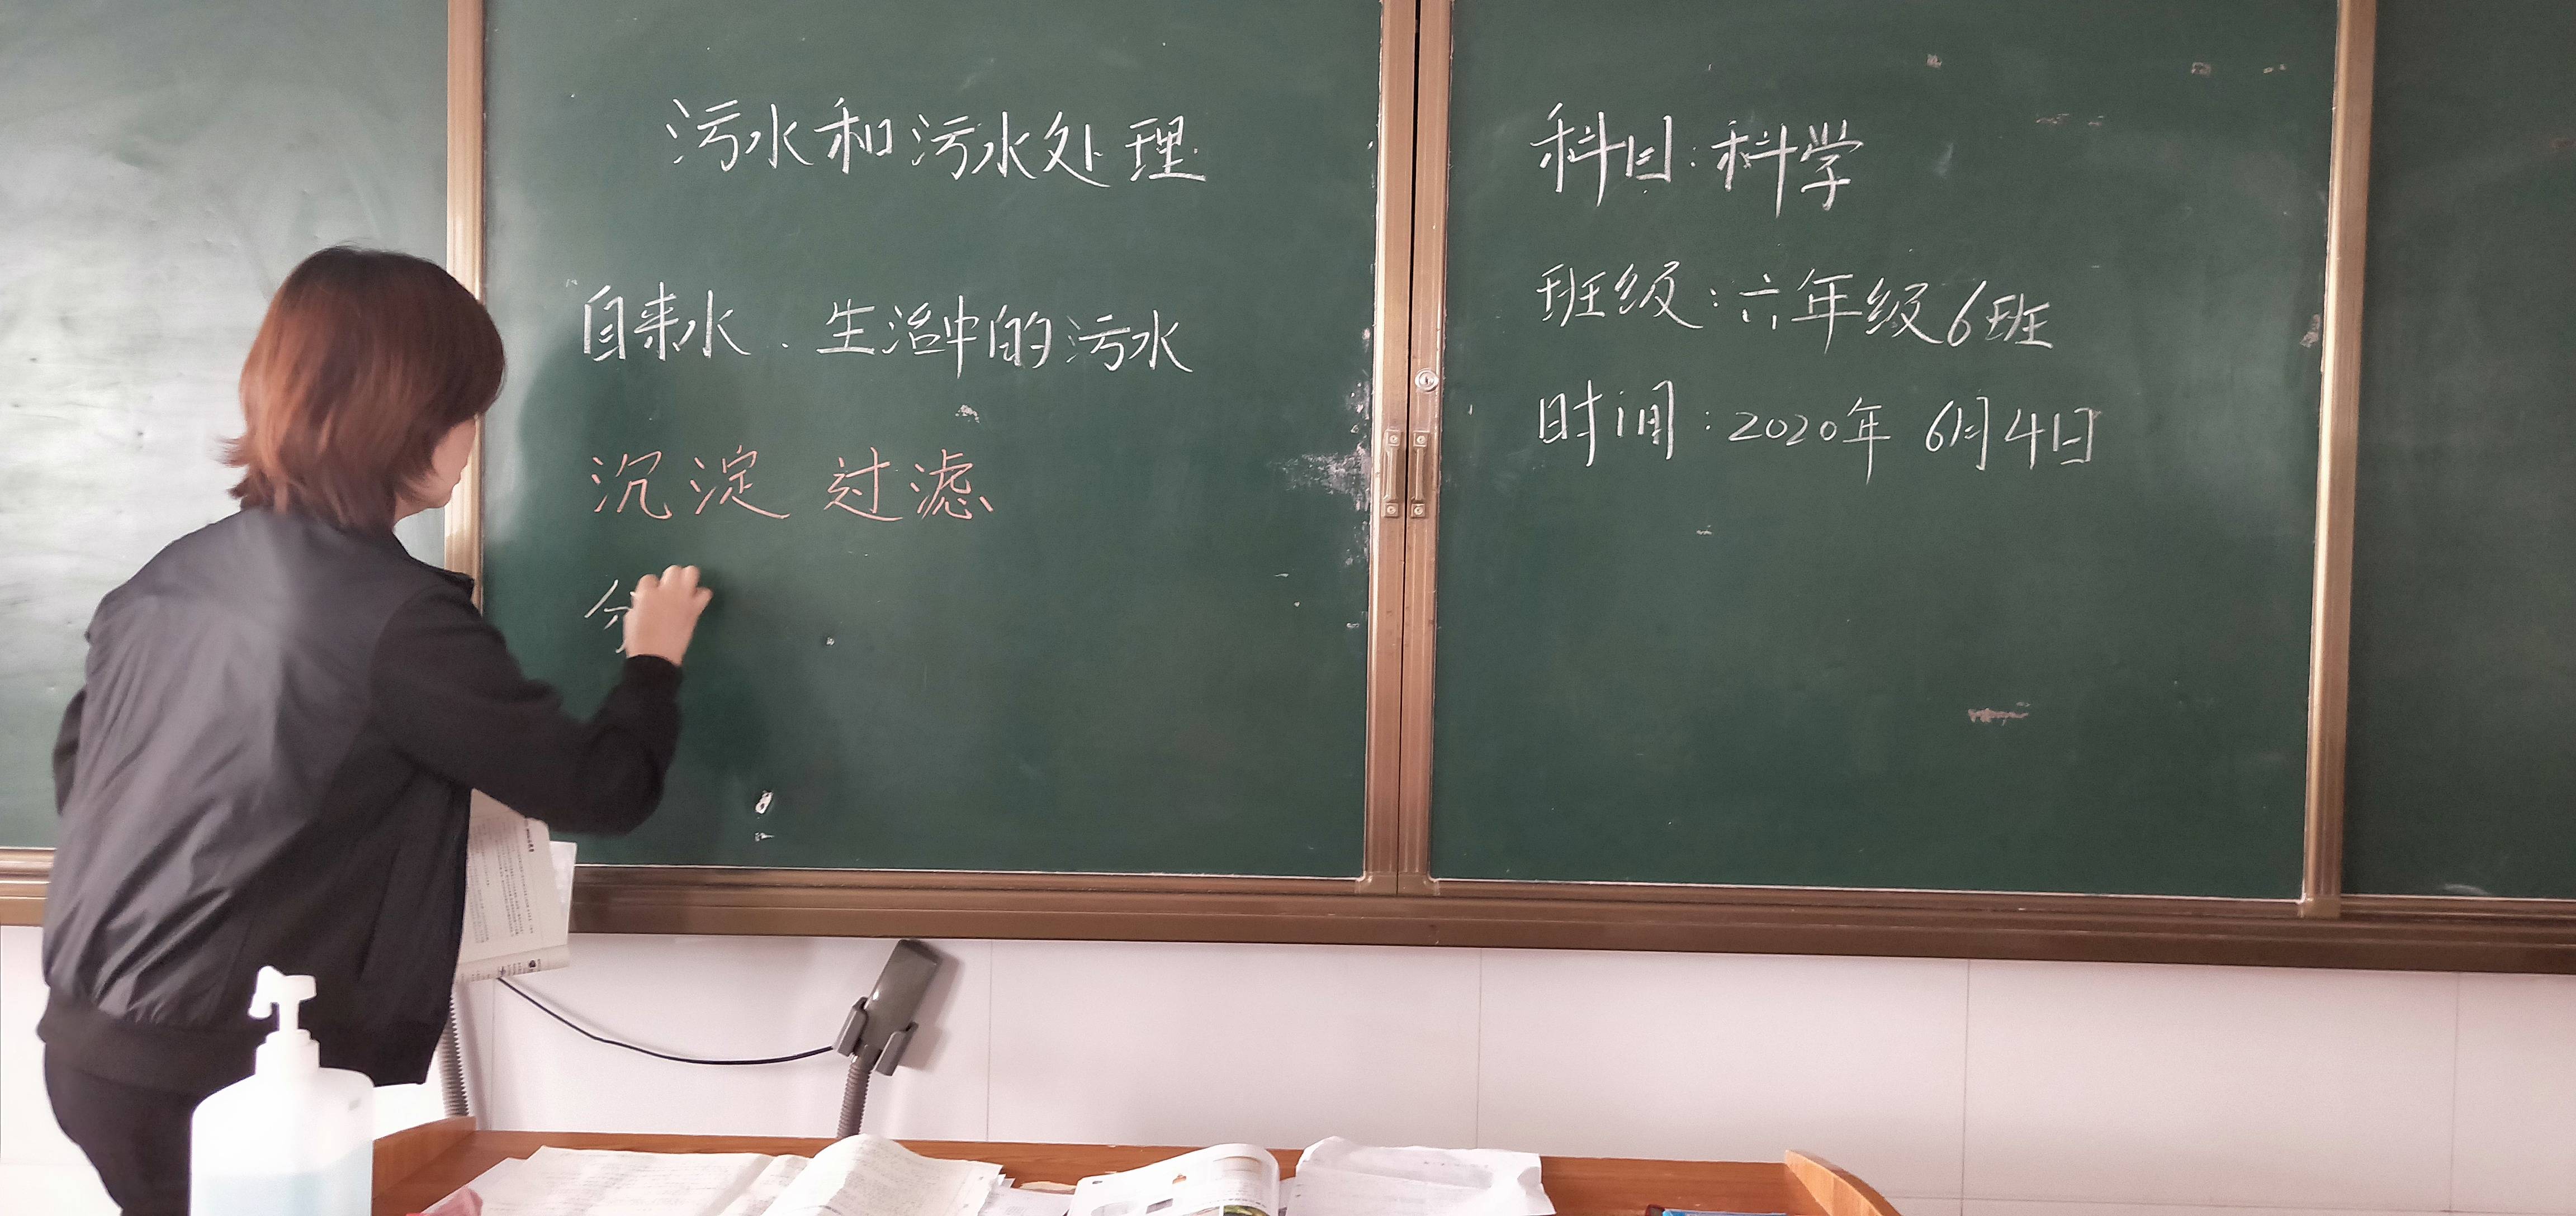 污水和污水处理
自来水、生活中的污水
沉淀 过滤
分
科目:科学
班级:六年级6班
时间:2020年 6月4日